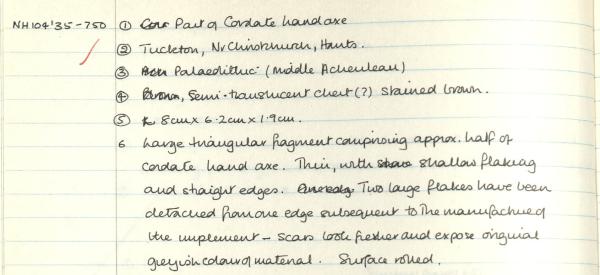 NH104'35-750 ① Part of Cordate handaxe
② Tuckton, Nr Christchurch, Hants.
③ Palaeolithic (Middle Acheulean)
④ Brown, Semi-translucent chert(?) stained brown.
⑤ 8cm x 6.2cm x 1.9cm.
6 Large triangular fragment comprising approx. half of
cordate hand axe. Thin, with shallow flaking
and straight edges. Two large flakes have been
detached from one edge subsequent to the manufacture of
the implement - scars look fresher and expose original
greyish colour of material. Surface rolled.